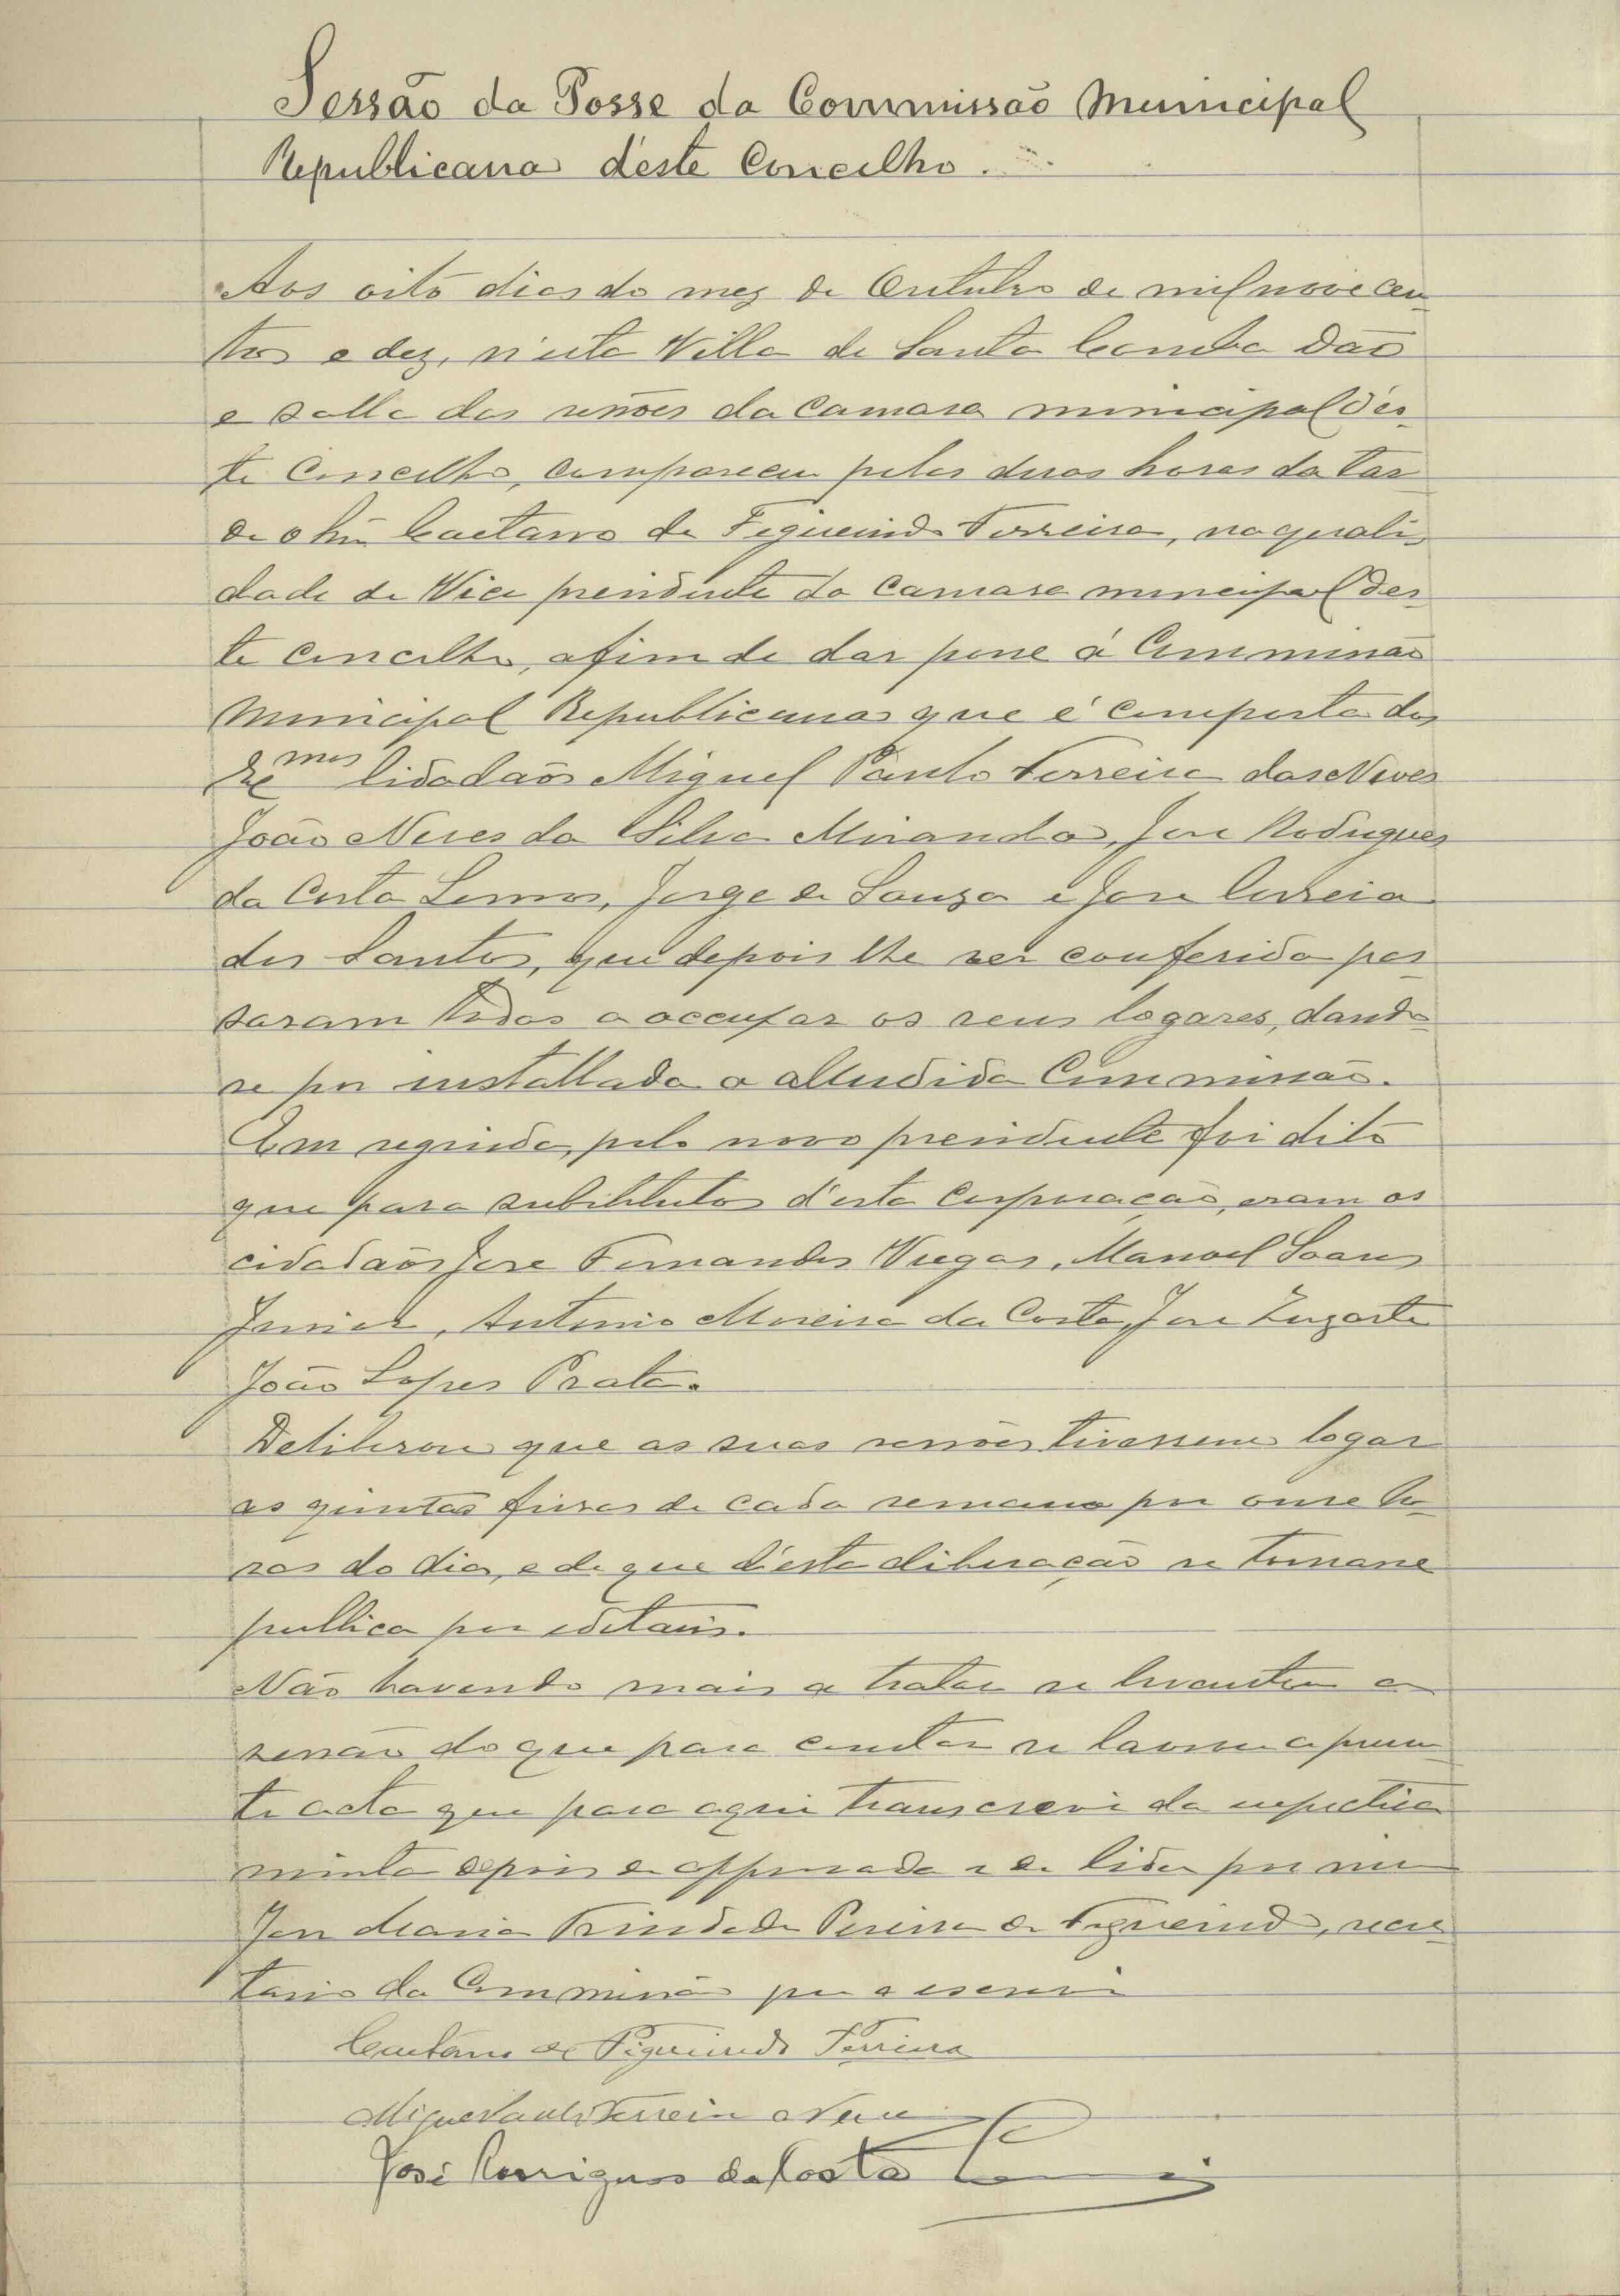 Sessão da Posse da Commissão Municipal
Republicana d'este Concelho.
Aos oito dias do mez de Outubro de mil nove cen-
tos e dez, n'esta Villa de Santa Comba Dão
e salla das sessões da Camara municipal d'es-
te Concelho, compareceu pelas duas horas da tar-
de o Caetano de Figueiredo Ferreira, na quali-
dade de Vice presidente da Camara municipal des-
te concelho, afim de dar posse á Commissão
Municipal Republicana que é composta dos
Ex.mos Cidadãos Miguel Paulo Ferreira das Neves
João Neves da Silva Miranda, Jose Rodrigues
da Costa Lemos, Jorge de Souza e Jose Correia
dos Santos, que depois lhe ser conferida pas-
saram todos a occupar os seus logares, dando-
se por installada a alludida Commissão.
Em seguida, pelo novo presidente foi dito
que para substitutos d'esta Corporação, eram os
cidadãos Jose Fernandes Viegas, Manoel Soares
Junior, Antonio Moreira da Costa, Jose Lugarte
João Lopes Prata.
Deliberou que as suas sessões tivessem logar
as quintas feiras de cada semana por onse ho-
ras do dia, e de que d'esta deliberação se tornasse
publica por editaes.
Não havendo mais a tratar se levantou a
sessão do que para constar se lavrou a presen-
te acta que para aqui transcrevi da respectiva
minuta depois de approvada e de lida por mim
Jose Maria Trindade Pereira de Figueiredo, secre-
tario da Commissão que a escrevi
Caetano de Figueiredo Ferreira
Miguel Paulo Ferreira Neves
José Rodrigues da Costa Lemos